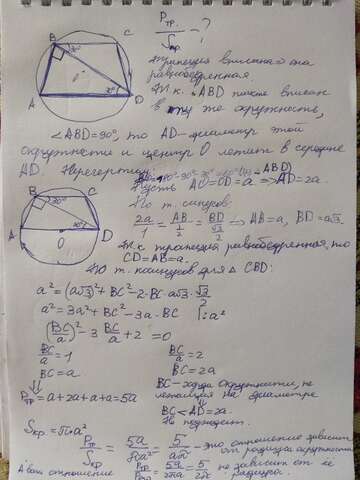 B C
A D
90°
30°
O
Pтр. / Sкр - ?
трапеция вписана => она
равнобедренная.
Т.к. △ABD также вписан
в ту же окружность,
∠ABD=90°, то AD - диаметр этой
окружности и центр O лежит в середине
AD. Перечертим
B C
A D
90°
30°
O
Пусть AO=OD=a => AD=2a.
По т. синусов:
2a/1 = AB/(1/2) = BD/(√3/2) => AB=a, BD=a√3.
Т.к. трапеция равнобедренная, то
CD=AB=a.
По т. косинусов для △ CBD:
a² = (a√3)² + BC² - 2·BC·a√3·√3/2
a² = 3a² + BC² - 3a·BC |:a²
(BC/a)² - 3 BC/a + 2 = 0
BC/a = 1 BC/a = 2
BC = a BC = 2a
BC - хорда окружности, не
лежащая на диаметре
BC < AD = 2a.
Не подходит.
Pтр = a+2a+a+a = 5a
Sкр. = πa²
Pтр/Sкр = 5a/πa² = 5/aπ - это отношение зависит
от радиуса окружности
А вот отношение Pтр/Pкр = 5a/2πa = 5/2π не зависит от её
радиуса.